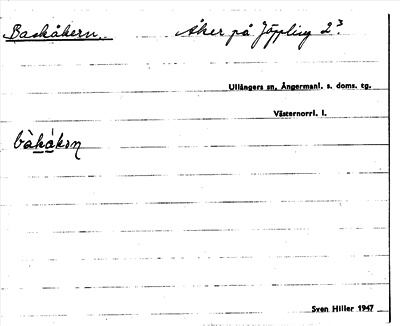 Backåkern. Åker på Jöppling 2³.
Ullångers sn, Ångermanl. s. doms. tg.
Västernorrl. l.
bàkákən
Sven Hiller 1947